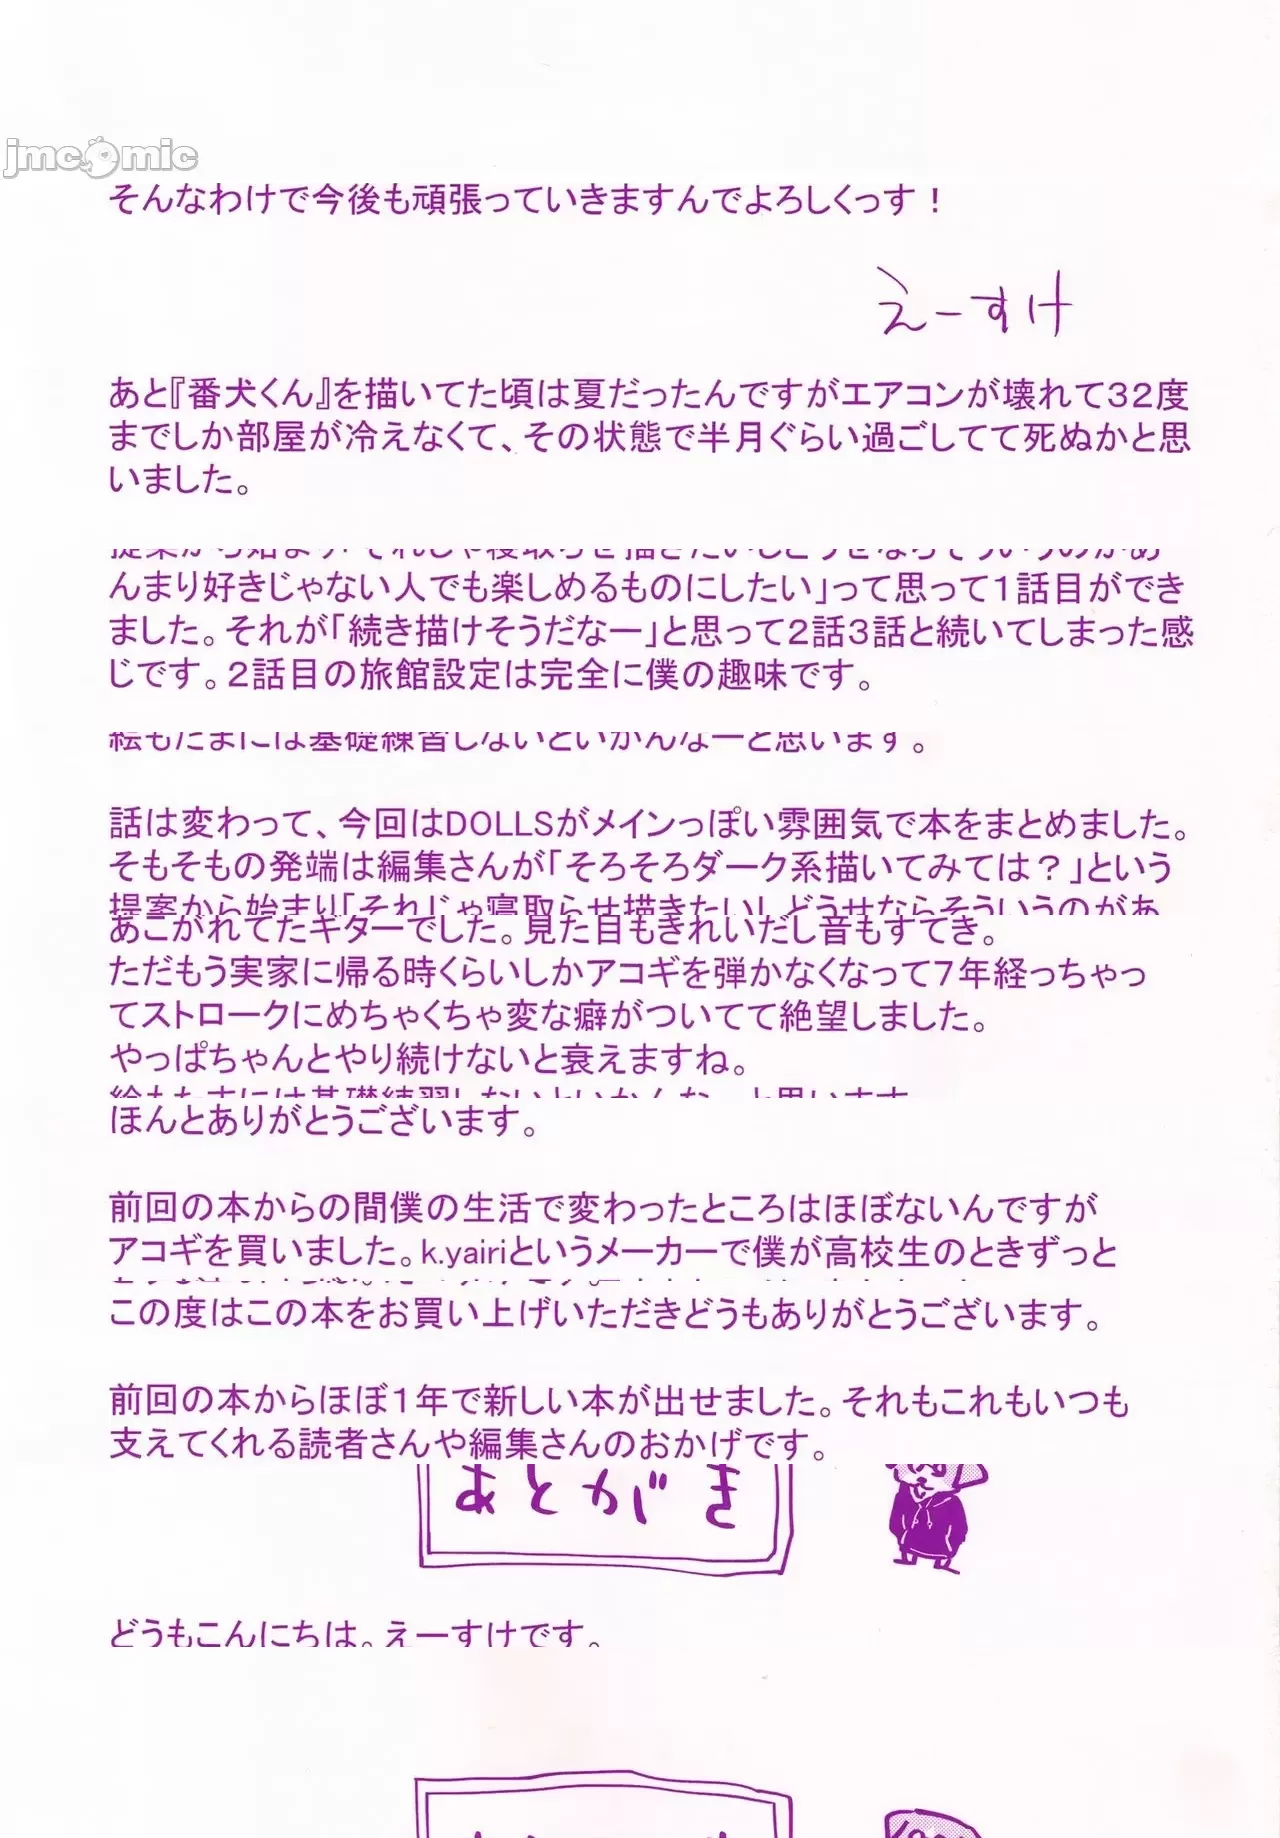 jmcomic
そんなわけで今後も頑張っていきますんでよろしくっす！
えーすけ
あと『番犬くん』を描いてた頃は夏だったんですがエアコンが壊れて３２度
までしか部屋が冷えなくて、その状態で半月ぐらい過ごしてて死ぬかと思
いました。
提案から始まり「それじゃ寝取らせ描きたいしどうせならそういうのがあ
んまり好きじゃない人でも楽しめるものにしたい」って思って１話目ができ
ました。それが「続き描けそうだなー」と思って２話３話と続いてしまった感
じです。２話目の旅館設定は完全に僕の趣味です。
絵もたまには基礎練習しないといかんなーと思います。
話は変わって、今回はDOLLSがメインっぽい雰囲気で本をまとめました。
そもそもの発端は編集さんが「そろそろダーク系描いてみては？」という
提案から始まり「それじゃ寝取らせ描きたいしどうせならそういうのがあ
あこがれてたギターでした。見た目もきれいだし音もすてき。
ただもう実家に帰る時くらいしかアコギを弾かなくなって７年経っちゃっ
てストロークにめちゃくちゃ変な癖がついてて絶望しました。
やっぱちゃんとやり続けないと衰えますね。
絵もたまには基礎練習しないといかんなーと思います
ほんとありがとうございます。
前回の本からの間僕の生活で変わったところはほぼないんですが
アコギを買いました。k.yairiというメーカーで僕が高校生のときずっと
この度はこの本をお買い上げいただきどうもありがとうございます。
前回の本からほぼ１年で新しい本が出せました。それもこれもいつも
支えてくれる読者さんや編集さんのおかげです。
あとがき
どうもこんにちは。えーすけです。